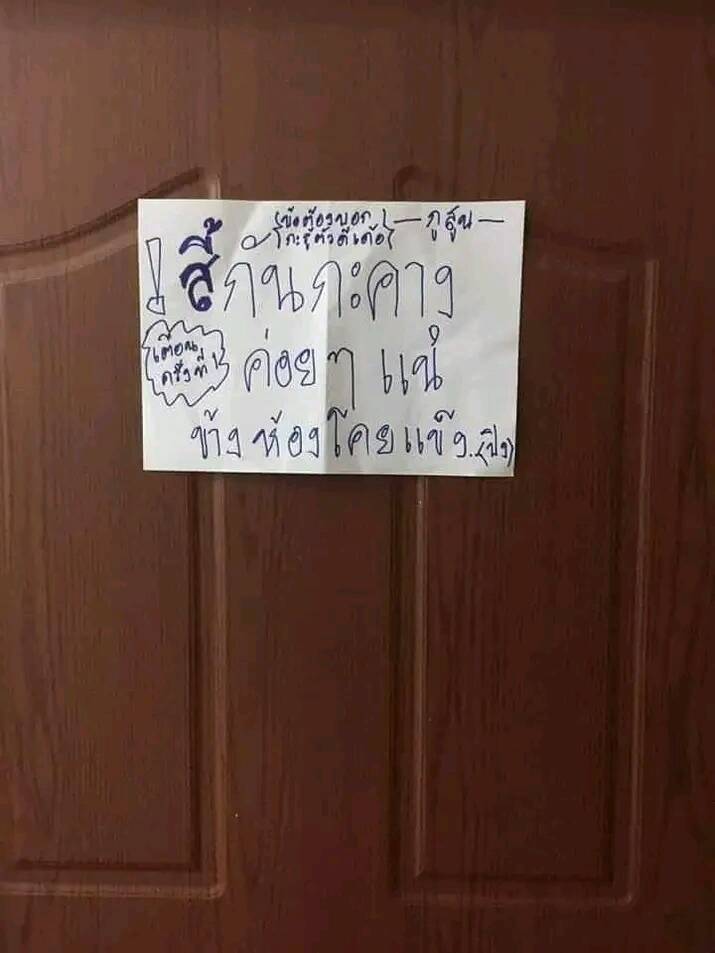 (บ่ต้องบอก —กูสูน—
กะรู้ตัวดีเด้อ)
! สี้กันกะคาง
เตือน
ครั้งที่ 1
ค่อยๆ แน่
ข้างห้องโคยแข็ง..(ปิง)